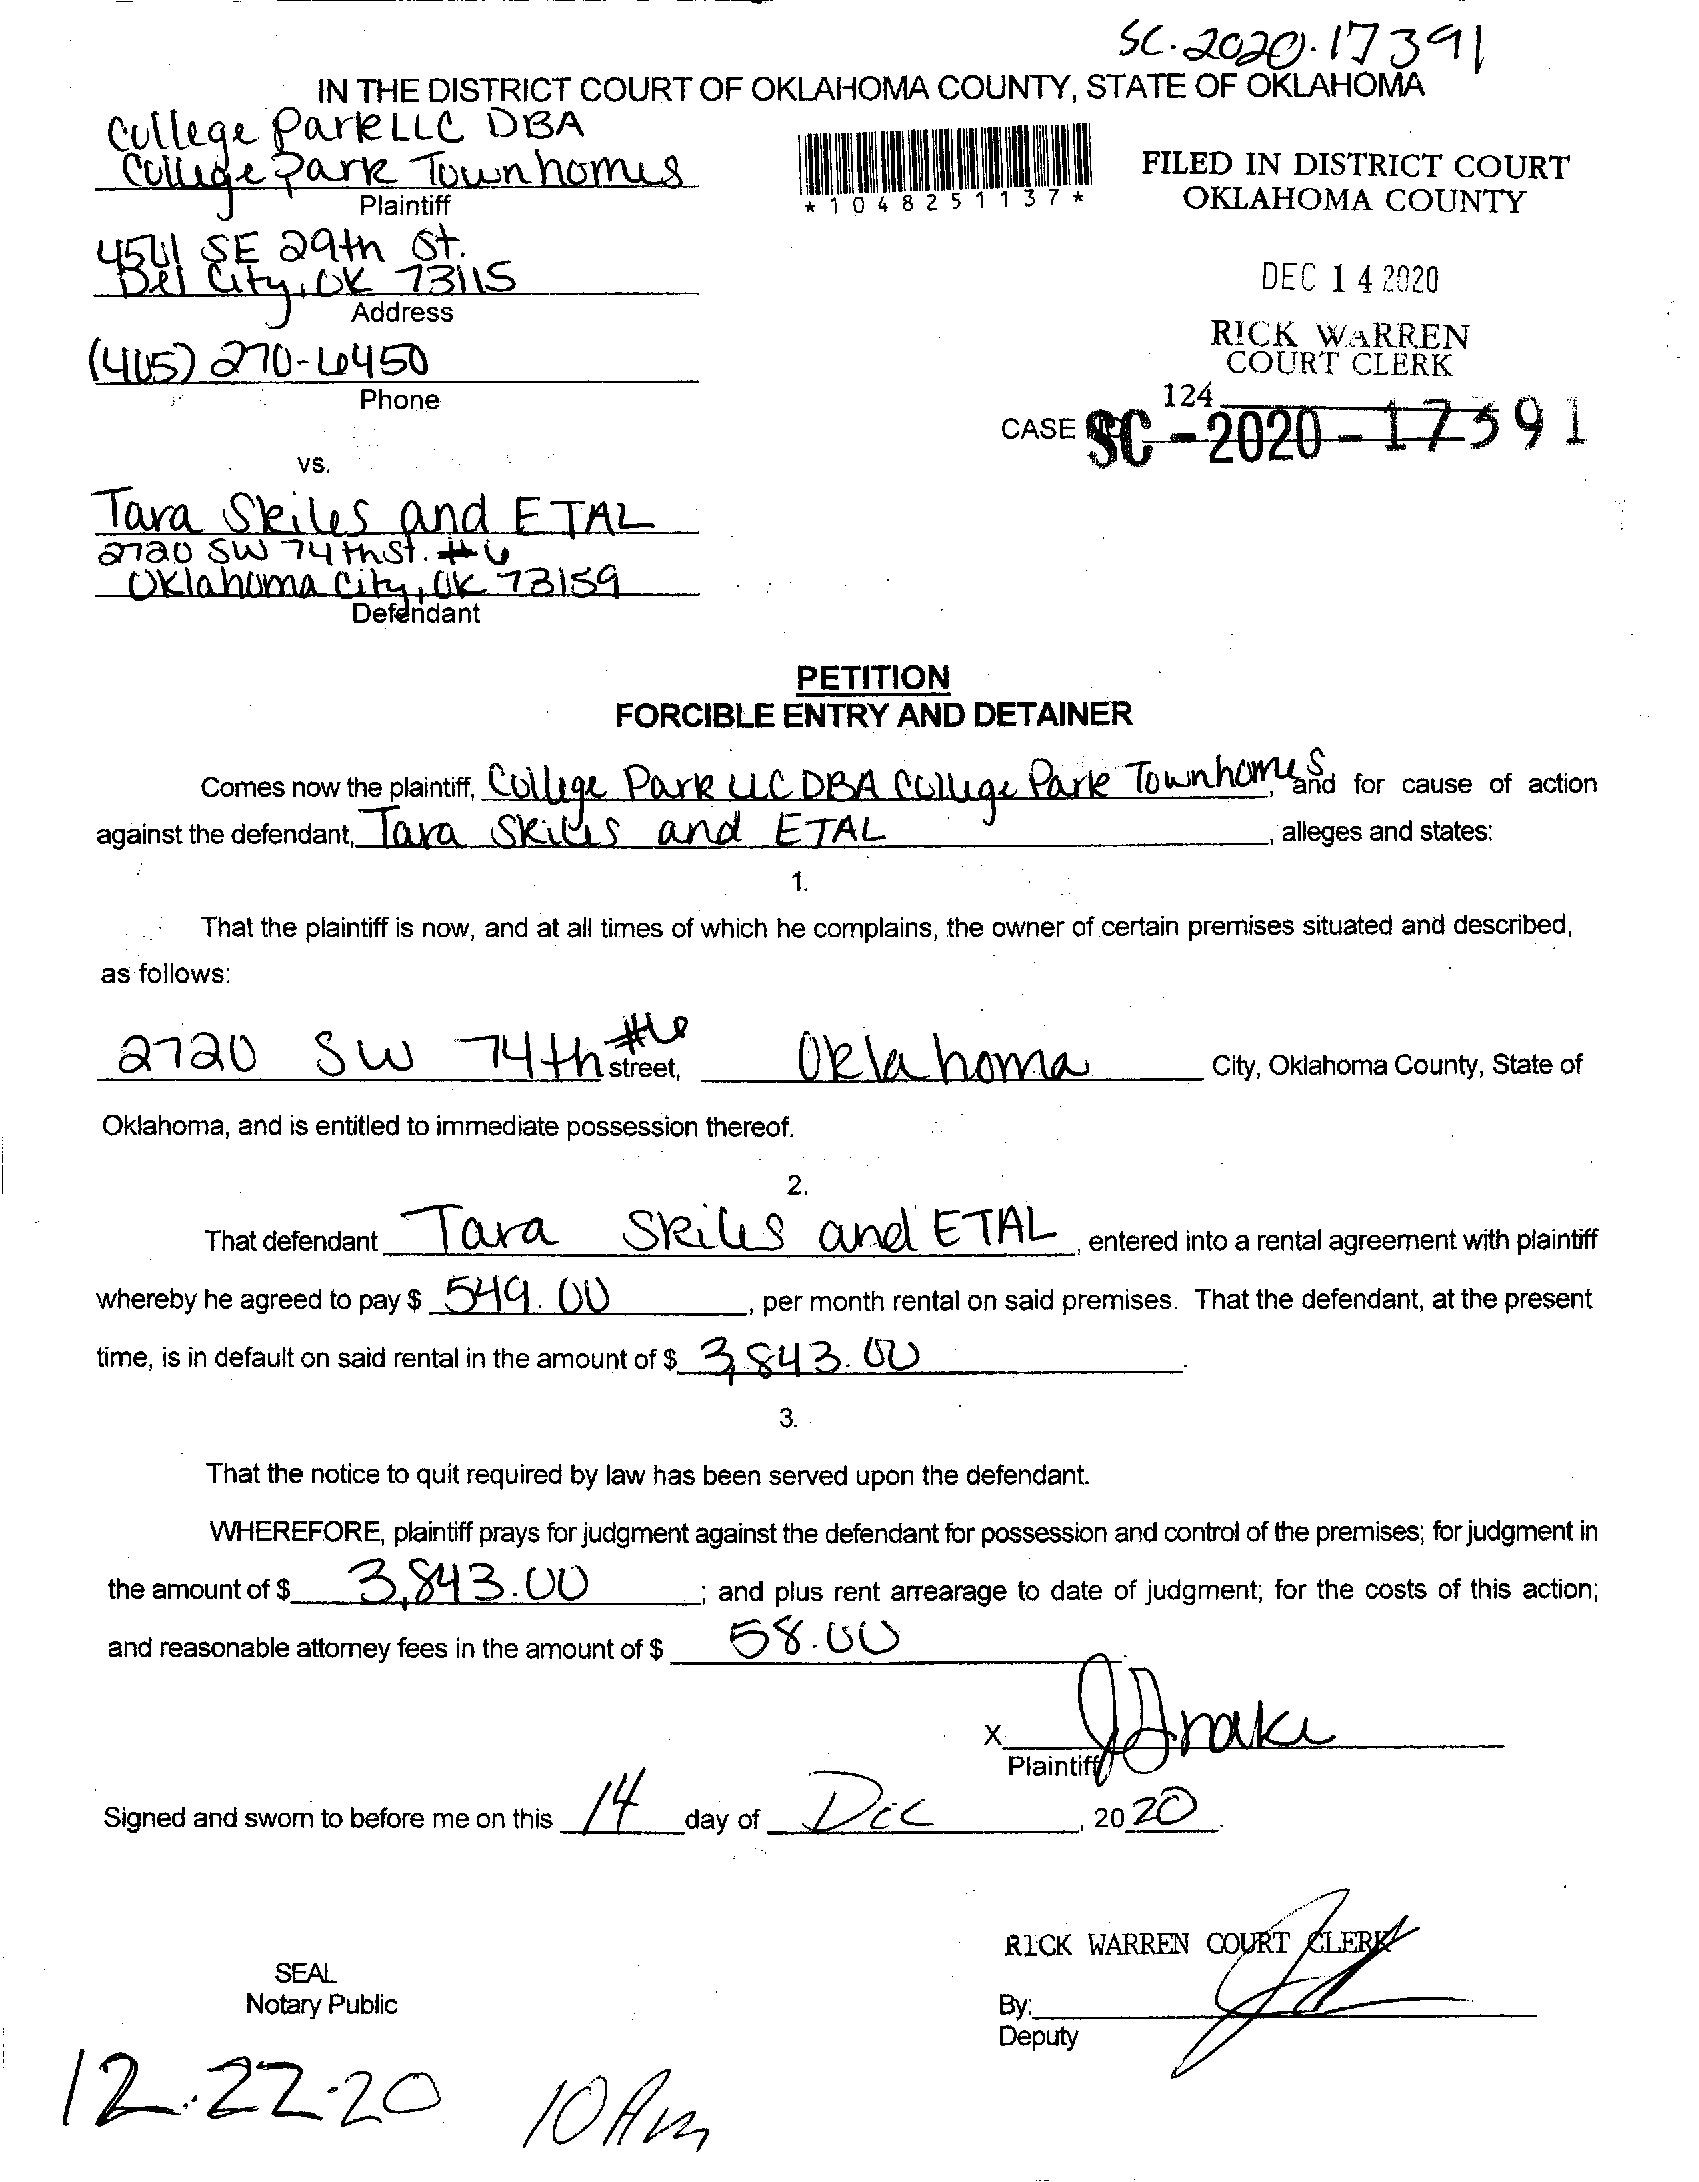 SC-2020-17391
IN THE DISTRICT COURT OF OKLAHOMA COUNTY, STATE OF OKLAHOMA
College Park LLC DBA
College Park Townhomes
Plaintiff
*1048251137*
FILED IN DISTRICT COURT
OKLAHOMA COUNTY
4541 SE 29th St.
Del City, OK 73115
Address
DEC 14 2020
RICK WARREN
COURT CLERK
(405) 270-6450
Phone
124
CASE SC-2020-17391
vs.
Tara Skiles and ETAL
2720 SW 74th St. #6
Oklahoma City, OK 73159
Defendant
PETITION
FORCIBLE ENTRY AND DETAINER
Comes now the plaintiff, College Park LLC DBA College Park Townhomes, and for cause of action
against the defendant, Tara Skiles and ETAL, alleges and states:
1.
That the plaintiff is now, and at all times of which he complains, the owner of certain premises situated and described,
as follows:
2720 SW 74th #6 street, Oklahoma City, Oklahoma County, State of
Oklahoma, and is entitled to immediate possession thereof.
2.
That defendant Tara Skiles and ETAL, entered into a rental agreement with plaintiff
whereby he agreed to pay $ 549.00, per month rental on said premises. That the defendant, at the present
time, is in default on said rental in the amount of $ 3,843.00.
3.
That the notice to quit required by law has been served upon the defendant.
WHEREFORE, plaintiff prays for judgment against the defendant for possession and control of the premises; for judgment in
the amount of $ 3,843.00; and plus rent arrearage to date of judgment; for the costs of this action;
and reasonable attorney fees in the amount of $ 58.00
X JDrake
Plaintiff
Signed and sworn to before me on this 14 day of Dec, 2020.
RICK WARREN COURT CLERK
SEAL
Notary Public
By:
Deputy
12-22-20 10 Am